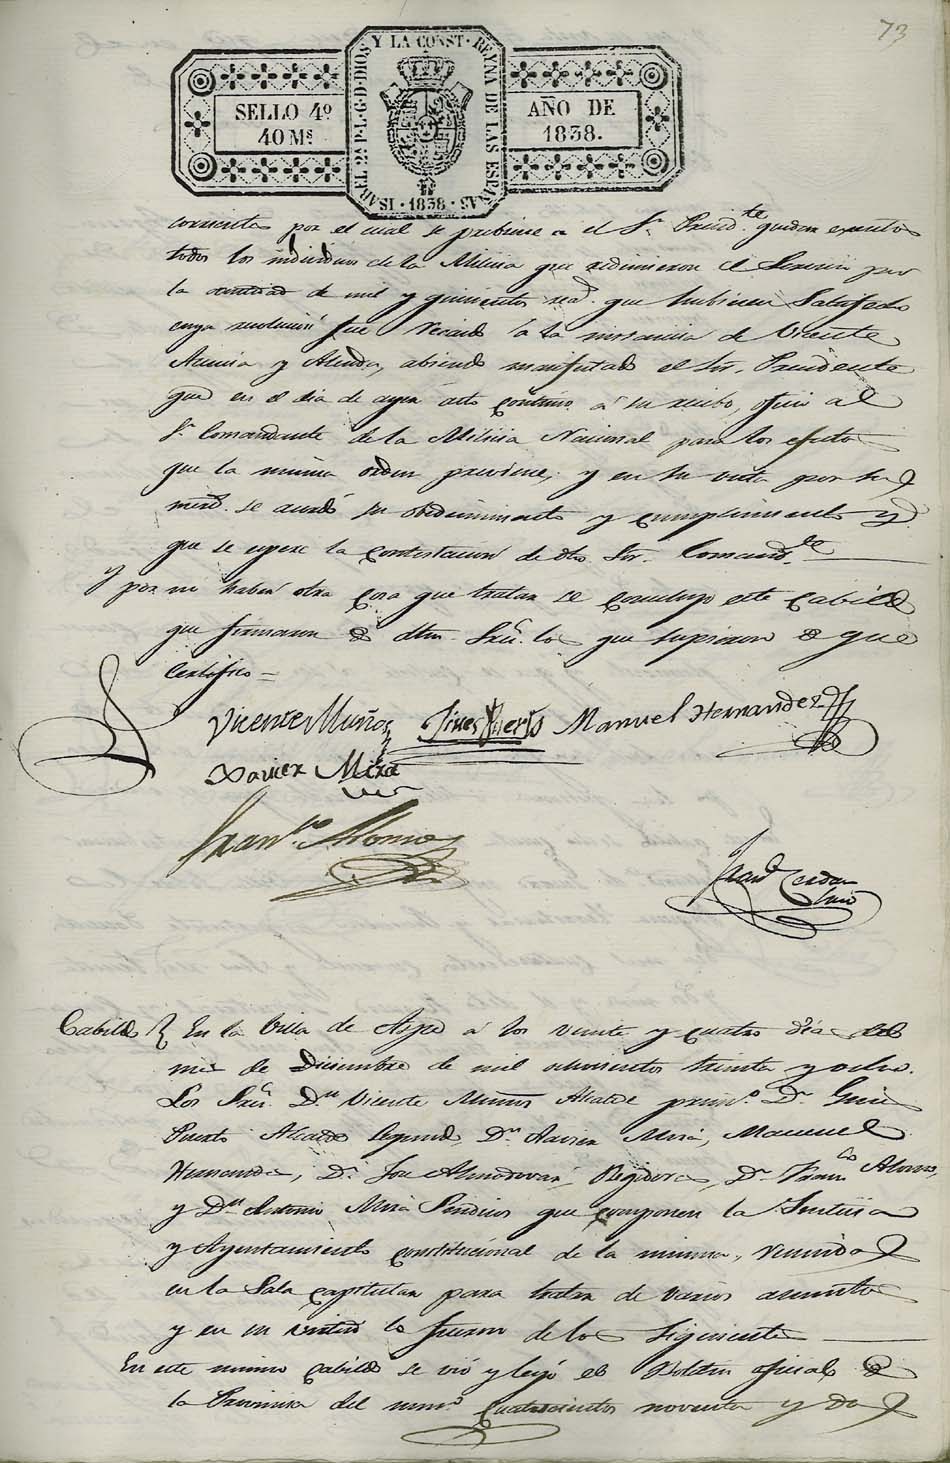 73
SELLO 4º
40 Ms
YSABEL 2ª P.L.G.D.DIOS Y LA CONST. REYNA DE LAS ESPAÑAS
1838
AÑO DE
1838.
corriente por el cual se previene a el Sr. Presid.te quedan exentos
todos los individuos de la Milicia que redimieron el Servicio por
la cantidad de mil y quinientos rea.s que hubiesen Satisfecho
cuya resolucion fue a la instancia de Vicente
y abiendo manifestado el Sr. Presidente
que en el dia de ayer acto continuo a su recibo, oficio al
Sr. Comandante de la Milicia Nacional para los efectos
que la misma orden previene; y en su vista por sus
mrd.s se acordó su obedecimiento y cumplimiento y
que se espere la contestacion de dho Sr. Comand.te
Y por no haber otra cosa que tratar se concluyo este Cabildo
que firmaron de dhos Sres. los que supieron de que
Certifico =
Vicente Muñoz Gines Puerto Manuel Hernandez
Xavier Mira
Fran.co Alonso
Fran.co Cerdan
Srio
Cabildo } En la Villa de Aspe á los veinte y cuatro dias del
mes de Diciembre de mil ochocientos treinta y ocho.
Los Sres. Dn. Vicente Muñoz Alcalde prim.o Dn. Gines
Puerto Alcalde segundo, Dn. Xavier Mira, Manuel
Hernandez, Dn. Jose Almodovar, Regidores, Dn. Fran.co Alonso,
y Dn. Antonio Mira Sindicos que componen la Justicia
y Ayuntamiento constitucional de la misma, reunidos
en la Sala capitular para tratar de varios asuntos
y en su virtud lo fueron de los siguientes
En este mismo Cabildo se vió y leyó el Boletin oficial de
la Provincia del num.o cuatrocientos noventa y dos